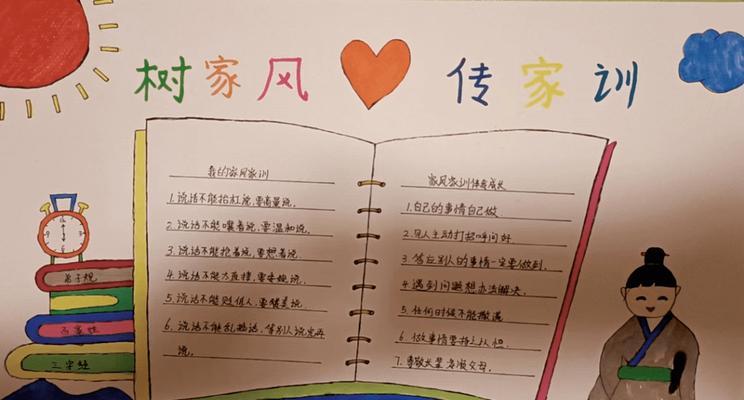 树家风 传家训
我的家风家训
1.说话不能抬杠说,要商量说。
2.说话不能嚷着说,要温和说。
3.说话不能抢着说,要想着说。
4.说话不能太直接,要委婉说。
5.说话不能贬低人,要赞美说。
6.说话不能乱插话,等别人说完再
说。
家风家训伴我成长
1.自己的事情自己做
2.见人主动打招呼问好
3.答应别人的事情一定要做到。
4.遇到问题想办法解决。
5.任何时候不能撒谎
6.做事情要持之以恒。
7.尊敬长辈,孝顺父母。
弟子规
百家姓
三字经